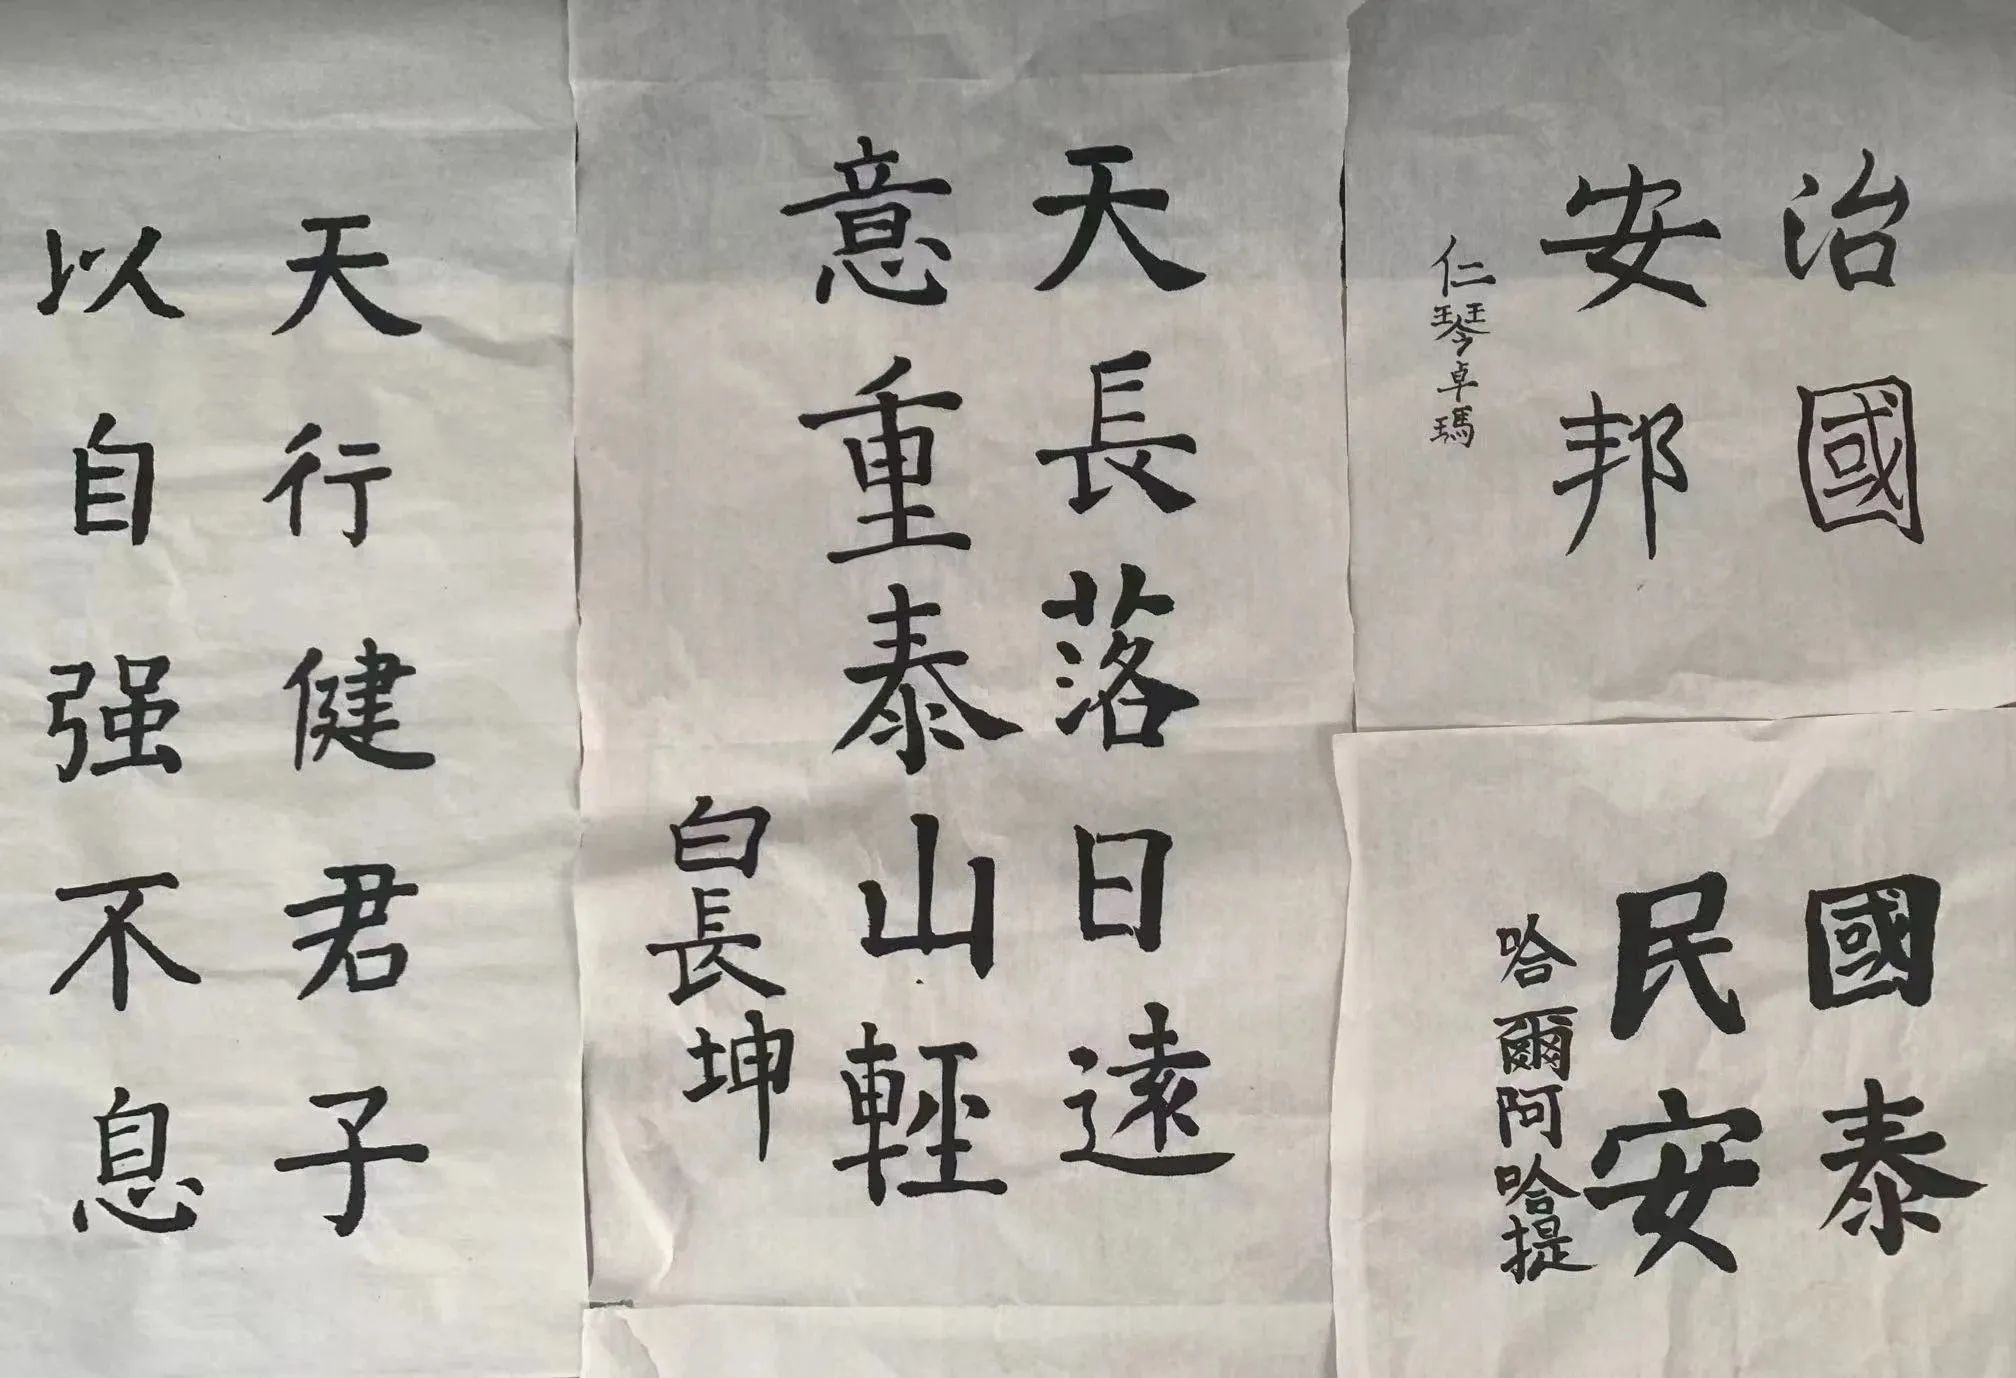 治國
安邦
仁琴卓瑪
國泰
民安
哈爾阿哈提
天長落日遠
意重泰山輕
白長坤
天行健君子
以自强不息